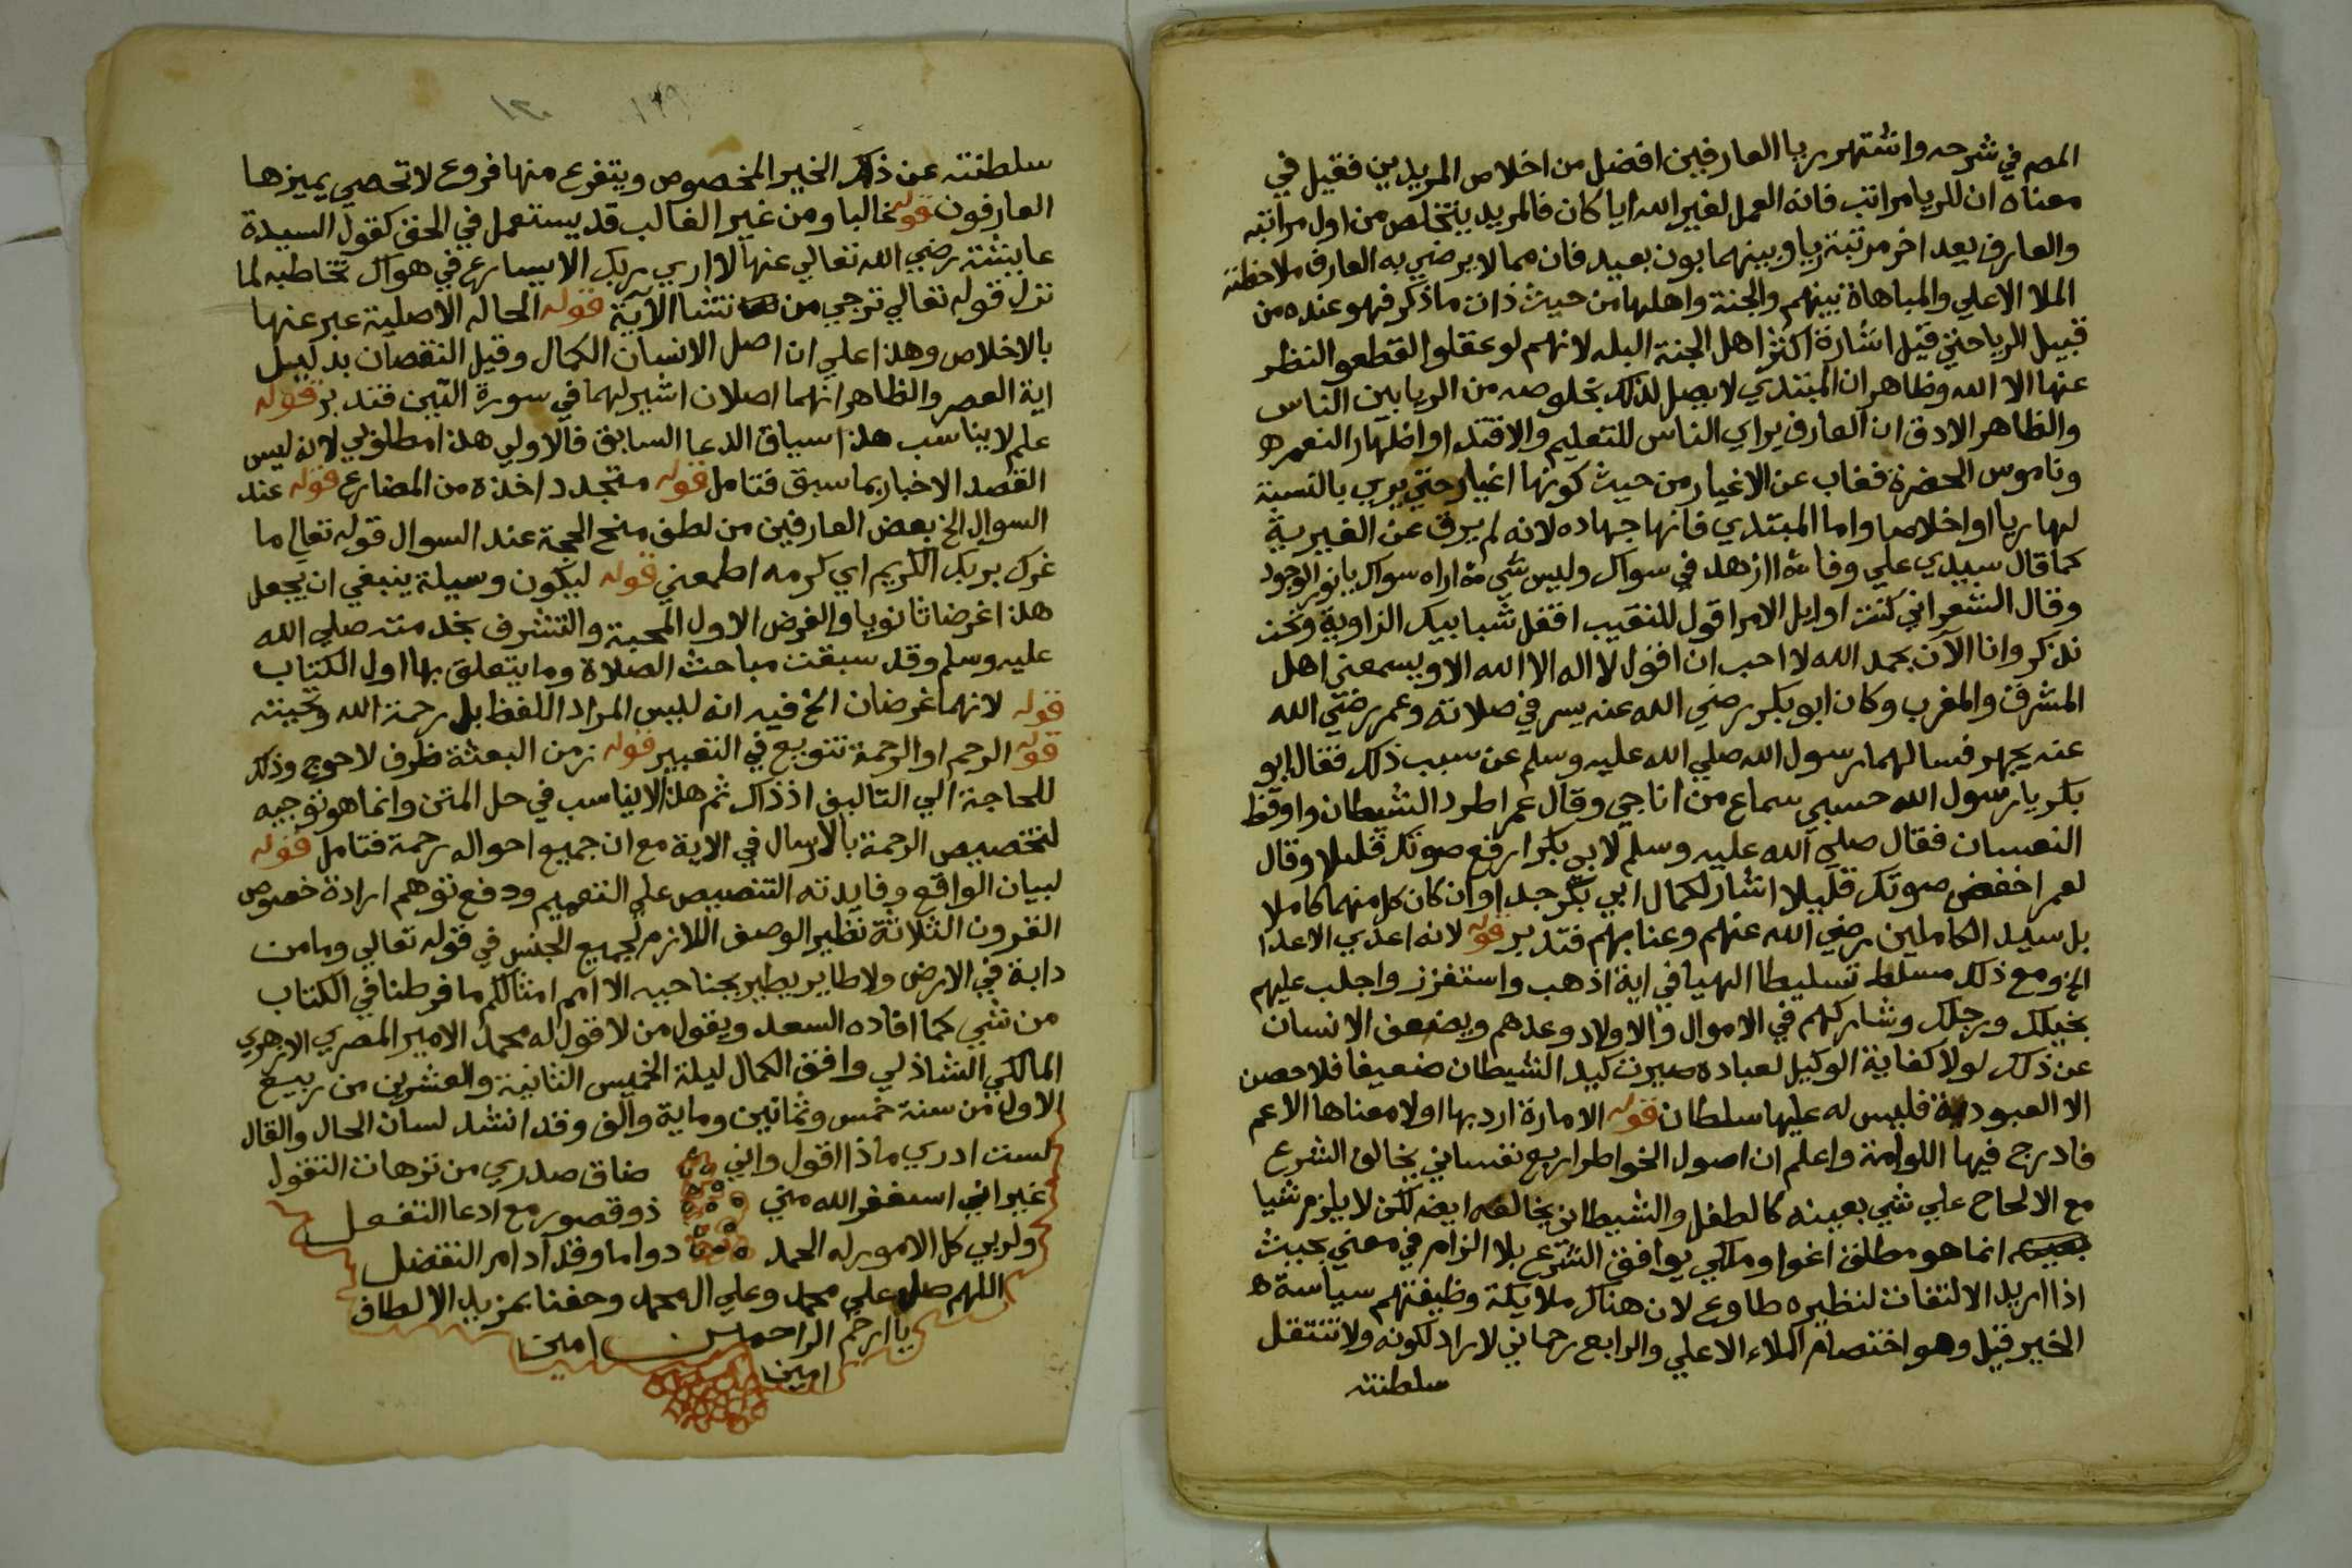 المص في شرحه واشتهر ريا العارفين افضل من اخلاص المريدين فقيل في
معناه ان للريا مراتب فانه العمل لغير الله ايا كان فالمريد يتخلص من اول مراتبه
والعارف يعد اخر مرتبة ريا وبينهما بون بعيد فان مما لا يرضي به العارف ملاحظته
الملا الاعلي والمباهاة بينهم والجنة واهلها من حيث ذات ما ذكر فهو عنده من
قبيل الريا حتي قيل اشارة اكثر اهل الجنة البله لانهم لو عقلوا لقطعوا النظر
عنها الا الله وظاهر ان المبتدي لا يصل لذلك بخلوصه من الريا بين الناس
والظاهر الادق ان العارف يراي الناس للتعليم والاقتدا او اظهار النعم ه
وناموس الحضرة فغاب عن الاغيار من حيث كونها اغيار حتي يري بالنسبة
لها ريا او اخلاصا واما المبتدي فانها جهاده لانه لم يرق عن الغيرية
كما قال سيدي علي وفا ازهد في سواك وليس شي اراه سواك يا نور الوجود
وقال الشعراني كنت اوايل الامر اقول للنقيب اقفل شبابيك الزاوية ونحن
نذكر وانا الآن بحمد الله لا احب ان اقول لا اله الا الله الا ويسمعني اهل
المشرق والمغرب وكان ابو بكر رضي الله عنه يسر في صلاته وعمر رضي الله
عنه يجهر فسالهما رسول الله صلي الله عليه وسلم عن سبب ذلك فقال ابو
بكر يا رسول الله حسبي سماع من اناجي وقال عمر اطرد الشيطان واوقظ
النعسان فقال صلي الله عليه وسلم لابي بكر ارفع صوتك قليلا وقال
لعمر اخفض صوتك قليلا اشار لكمال ابي بكر جدا وان كان كل منهما كاملا
بل سيد الكاملين رضي الله عنهم وعنا بهم فتدبر قوله لانه اعدي الاعدا
الخ ومع ذلك مسلط تسليطا الهيا في اية اذهب واستفزز واجلب عليهم
بخيلك ورجلك وشاركهم في الاموال والاولاد وعدهم ويضعف الانسان
عن ذلك لولا كفاية الوكيل لعباده صيرت كيد الشيطان ضعيفا فلا حصن
الا العبودية فليس له عليها سلطان قوله الامارة اردبها اولا معناها الاعم
فادرج فيها اللوامة واعلم ان اصول الخواطر اربع نفساني يخالف الشرع
مع الالحاح علي شي بعينه كالطفل والشيطاني يخالفه ايضه لكن لا يلزم شيا
بعينه انما هو مطلق اغوا وملكي يوافق الشرع بلا الزام في معني بحيث
اذا اريد الالتفات لنظيره طاوع لان هناك ملايكة وظيفتهم سياسة ه
الخير قيل وهو اختصام الملاء الاعلي والرابع رحماني لا راد لكونه ولا تنتقل
سلطنته
سلطنته عن ذلك الخير المخصوص ويتفرع منها فروع لا تحصي يميزها
العارفون قوله غالبا ومن غير الغالب قد يستعمل في الحق كقول السيدة
عايشة رضي الله تعالي عنها لا اري ربك الا يسارع في هواك تخاطبه لما
نزل قوله تعالي ترجي من تشا الآية قوله الحاله الاصلية عبر عنها
بالاخلاص وهذا علي ان اصل الانسان الكمال وقيل النقصان بدليل
اية العصر والظاهر انهما اصلان اشير لهما في سورة التين فتدبر قوله
علم لا يناسب هذا سياق الدعا السابق فالاولي هذا مطلوبي لانه ليس
القصد الاخبار بما سبق فتامل قوله متجدد اخذه من المضارع قوله عند
السوال الخ بعض العارفين من لطف منح الحجة عند السوال قوله تعالي ما
غرك بربك الكريم اي كرمه اطمعني قوله ليكون وسيلة ينبغي ان يجعل
هذا غرضا ثانويا والغرض الاول المحبة والتشرف بخدمته صلي الله
عليه وسلم وقد سبقت مباحث الصلاة وما يتعلق بها اول الكتاب
قوله لانهما غرضان الخ فيه انه ليس المراد اللفظ بل رحمة الله وتحيته
قوله الرحم او الرحمة تنويع في التعبير قوله زمن البعثة ظرف لاحوج وذلك
للحاجة الي التاليف اذ ذاك ثم هذا لا يناسب في حل المتن وانما هو توجيه
لتخصيص الرحمة بالارسال في الاية مع ان جميع احواله رحمة فتامل قوله
لبيان الواقع وفايدته التنصيص علي التعميم ودفع توهم ارادة خصوص
القرون الثلاثة نظير الوصف اللازم لجميع الجنس في قوله تعالي وما من
دابة في الارض ولا طاير يطير بجناحيه الا امم امثالكم ما فرطنا في الكتاب
من شي كما افاده السعد ويقول من لا قول له محمد الامير المصري الازهري
المالكي الشاذلي وافق الكمال ليلة الخميس الثانية والعشرين من ربيع
الاول من سنة خمس وثمانين وماية والف وقد انشد لسان الحال والقال
لست ادري ماذا اقول واني ضاق صدري من ترهات التقول
غير اني استغفر الله مني ذو قصور مع ادعا التفعل
ولربي كل الامور له الحمد دواما وقد ادام التفضل
اللهم صل علي محمد وعلي ال محمد وحفنا بمزيد الالطاف
يا ارحم الراحمين امين
امين